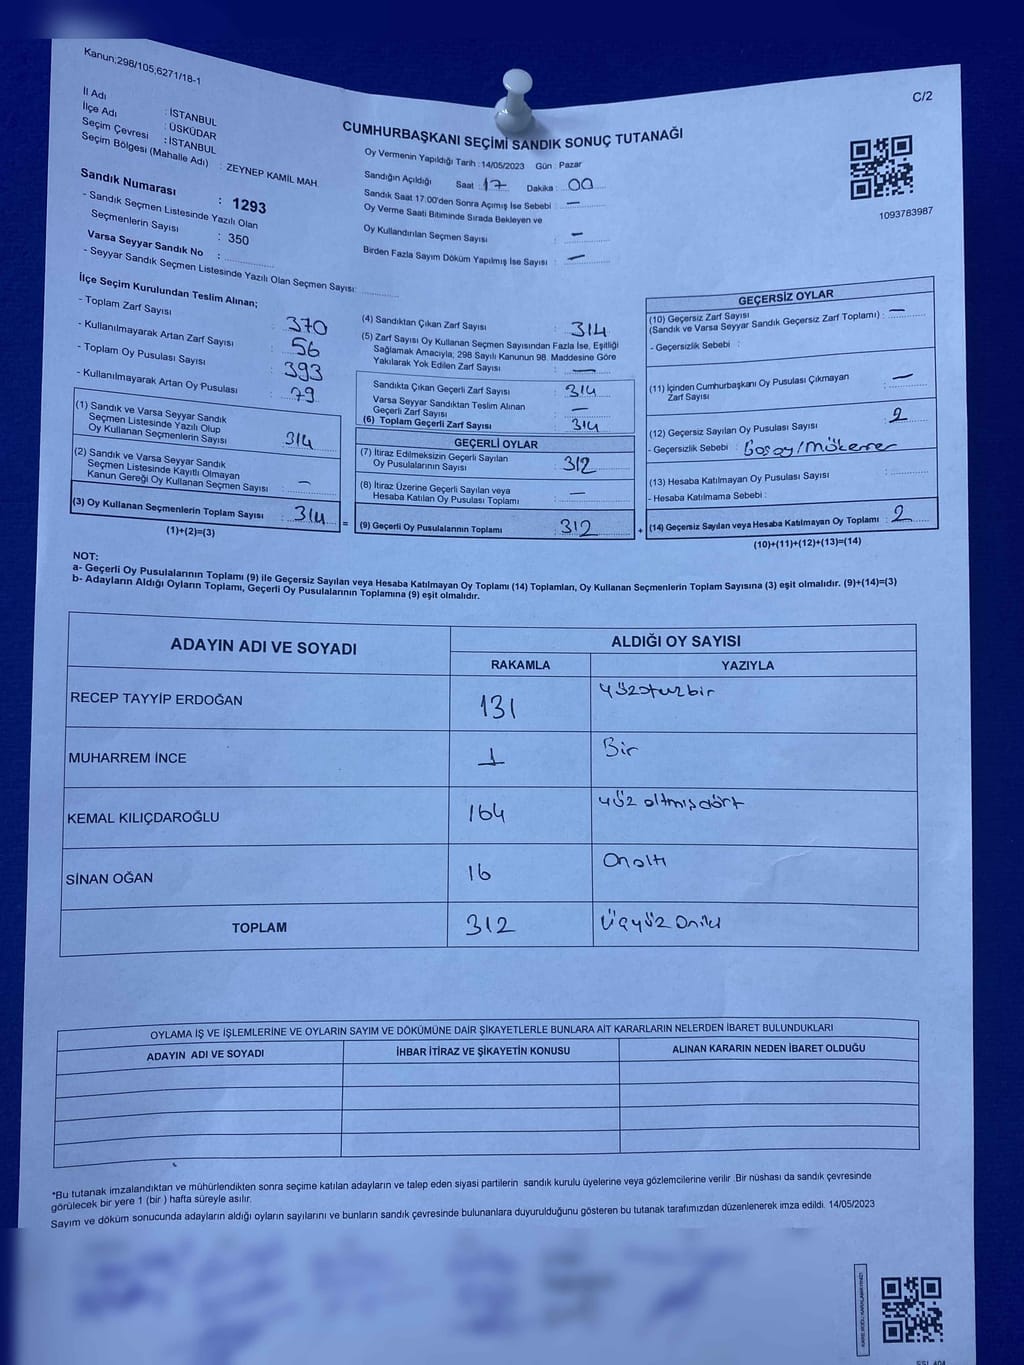 Kanun;298/105;6271/18-1
C/2
İl Adı : İSTANBUL
İlçe Adı : ÜSKÜDAR
Seçim Çevresi : İSTANBUL
Seçim Bölgesi (Mahalle Adı) : ZEYNEP KAMİL MAH.
CUMHURBAŞKANI SEÇİMİ SANDIK SONUÇ TUTANAĞI
Oy Vermenin Yapıldığı Tarih : 14/05/2023 Gün : Pazar
Sandığın Açıldığı Saat : 17 Dakika : 00
Sandık Saat 17.00'den Sonra Açımış İse Sebebi : —
Oy Verme Saati Bitiminde Sırada Bekleyen ve
Oy Kullandırılan Seçmen Sayısı : —
Birden Fazla Sayım Döküm Yapılmış İse Sayısı : —
1093783987
Sandık Numarası : 1293
- Sandık Seçmen Listesinde Yazılı Olan
Seçmenlerin Sayısı : 350
Varsa Seyyar Sandık No :
- Seyyar Sandık Seçmen Listesinde Yazılı Olan Seçmen Sayısı:
İlçe Seçim Kurulundan Teslim Alınan;
- Toplam Zarf Sayısı : 370
- Kullanılmayarak Artan Zarf Sayısı : 56
- Toplam Oy Pusulası Sayısı : 393
- Kullanılmayarak Artan Oy Pusulası : 79
(1) Sandık ve Varsa Seyyar Sandık
Seçmen Listesinde Yazılı Olup
Oy Kullanan Seçmenlerin Sayısı : 314
(2) Sandık ve Varsa Seyyar Sandık
Seçmen Listesinde Kayıtlı Olmayan
Kanun Gereği Oy Kullanan Seçmen Sayısı : —
(3) Oy Kullanan Seçmenlerin Toplam Sayısı : 314
(1)+(2)=(3)
=
(4) Sandıktan Çıkan Zarf Sayısı : 314
(5) Zarf Sayısı Oy Kullanan Seçmen Sayısından Fazla İse, Eşitliği
Sağlamak Amacıyla; 298 Sayılı Kanunun 98. Maddesine Göre
Yakılarak Yok Edilen Zarf Sayısı : —
Sandıkta Çıkan Geçerli Zarf Sayısı : 314
Varsa Seyyar Sandıktan Teslim Alınan
Geçerli Zarf Sayısı : —
(6) Toplam Geçerli Zarf Sayısı : 314
GEÇERLİ OYLAR
(7) İtiraz Edilmeksizin Geçerli Sayılan
Oy Pusulalarının Sayısı : 312
(8) İtiraz Üzerine Geçerli Sayılan veya
Hesaba Katılan Oy Pusulası Toplamı : —
(9) Geçerli Oy Pusulalarının Toplamı : 312
+
GEÇERSİZ OYLAR
(10) Geçersiz Zarf Sayısı
(Sandık ve Varsa Seyyar Sandık Geçersiz Zarf Toplamı) : —
- Geçersizlik Sebebi :
(11) İçinden Cumhurbaşkanı Oy Pusulası Çıkmayan
Zarf Sayısı : —
(12) Geçersiz Sayılan Oy Pusulası Sayısı : 2
- Geçersizlik Sebebi : Boş oy/Mükerrer
(13) Hesaba Katılmayan Oy Pusulası Sayısı :
- Hesaba Katılmama Sebebi :
(14) Geçersiz Sayılan veya Hesaba Katılmayan Oy Toplamı : 2
(10)+(11)+(12)+(13)=(14)
NOT:
a- Geçerli Oy Pusulalarının Toplamı (9) ile Geçersiz Sayılan veya Hesaba Katılmayan Oy Toplamı (14) Toplamları, Oy Kullanan Seçmenlerin Toplam Sayısına (3) eşit olmalıdır. (9)+(14)=(3)
b- Adayların Aldığı Oyların Toplamı, Geçerli Oy Pusulalarının Toplamına (9) eşit olmalıdır.
ADAYIN ADI VE SOYADI ALDIĞI OY SAYISI
RAKAMLA YAZIYLA
RECEP TAYYİP ERDOĞAN 131 yüzotuzbir
MUHARREM İNCE 1 Bir
KEMAL KILIÇDAROĞLU 164 yüz altmışdört
SİNAN OĞAN 16 Onaltı
TOPLAM 312 Üçyüz Oniki
OYLAMA İŞ VE İŞLEMLERİNE VE OYLARIN SAYIM VE DÖKÜMÜNE DAİR ŞİKAYETLERLE BUNLARA AİT KARARLARIN NELERDEN İBARET BULUNDUKLARI
ADAYIN ADI VE SOYADI İHBAR İTİRAZ VE ŞİKAYETİN KONUSU ALINAN KARARIN NEDEN İBARET OLDUĞU
*Bu tutanak imzalandıktan ve mühürlendikten sonra seçime katılan adayların ve talep eden siyasi partilerin sandık kurulu üyelerine veya gözlemcilerine verilir .Bir nüshası da sandık çevresinde
görülecek bir yere 1 (bir ) hafta süreyle asılır.
Sayım ve döküm sonucunda adayların aldığı oyların sayılarını ve bunların sandık çevresinde bulunanlara duyurulduğunu gösteren bu tutanak tarafımızdan düzenlenerek imza edildi. 14/05/2023